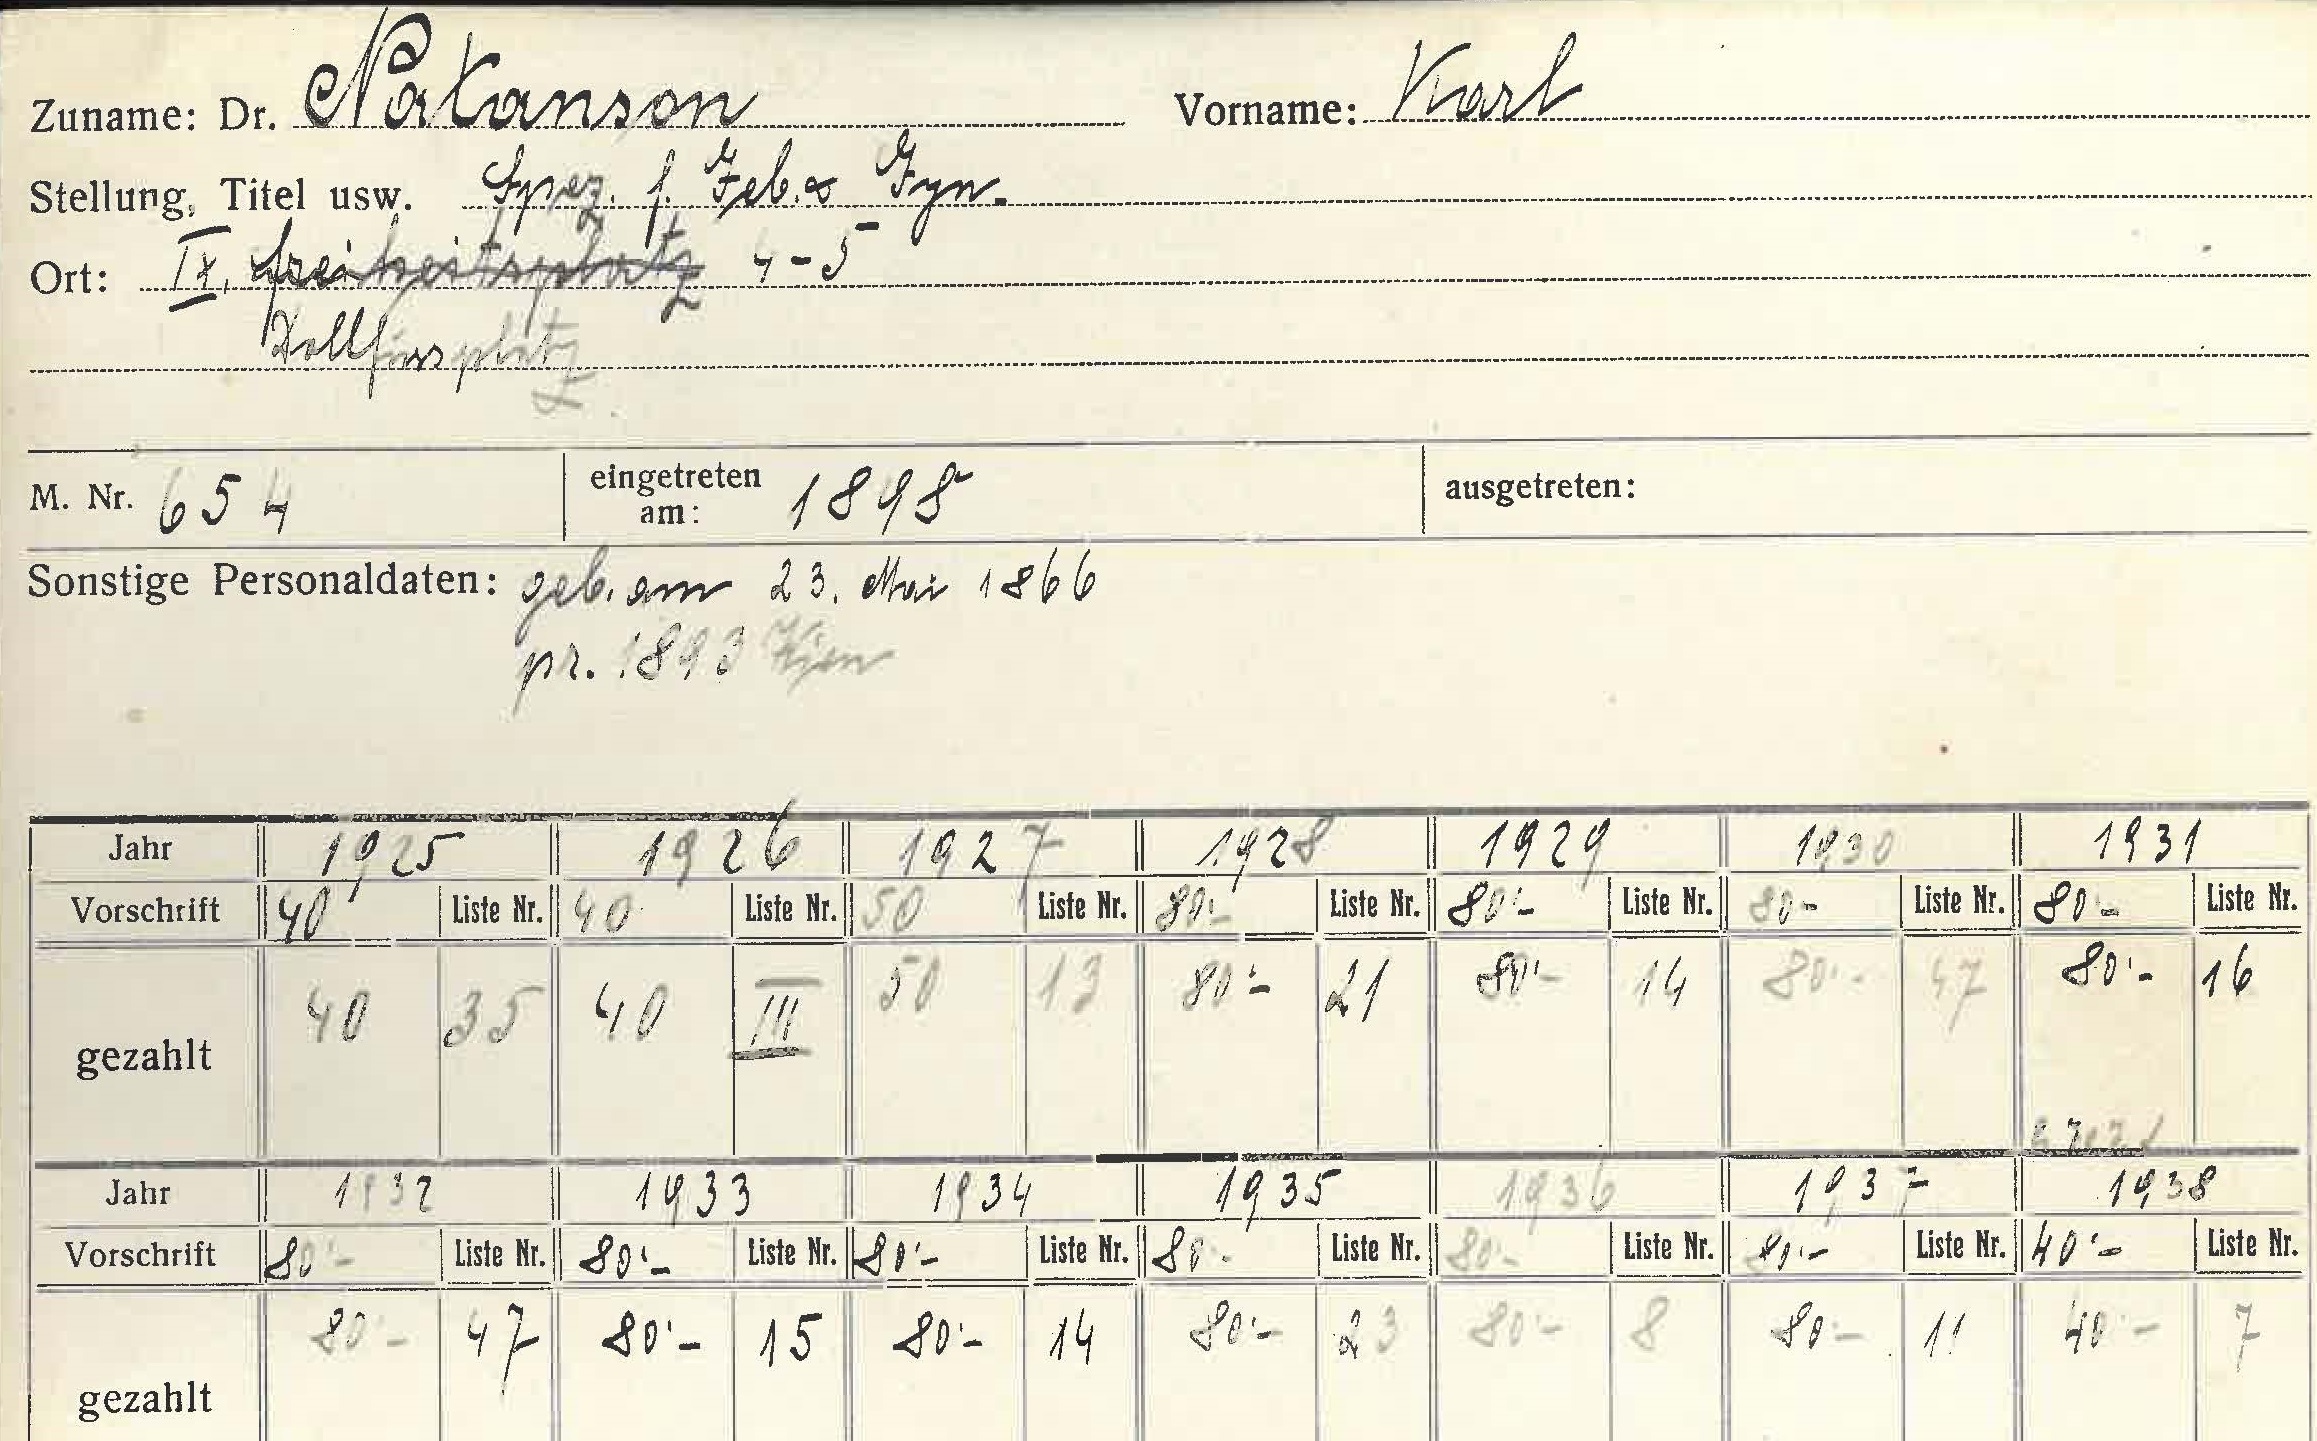 Zuname: Dr. Natanson Vorname: Karl
Stellung, Titel usw. Spez. f. Geb. & Gyn.
Ort: IX, Freiheitsplatz 4-5
Dollfussplatz
M. Nr. 654 eingetreten am: 1898 ausgetreten:
Sonstige Personaldaten: geb. am 23. Mai 1866
pr. 1893 Wien
Jahr 1925 1926 1927 1928 1929 1930 1931
Vorschrift 40 Liste Nr. 40 Liste Nr. 50 Liste Nr. 80'- Liste Nr. 80'- Liste Nr. 80- Liste Nr. 80'- Liste Nr.
gezahlt 40 35 40 III 50 13 80'- 21 80'- 14 80'- 47 80'- 16
Jahr 1932 1933 1934 1935 1936 1937 1938
Vorschrift 80'- Liste Nr. 80'- Liste Nr. 80'- Liste Nr. 80- Liste Nr. 80'- Liste Nr. 80'- Liste Nr. 40'- Liste Nr.
gezahlt 80'- 47 80'- 15 80'- 14 80'- 23 80'- 8 80'- 11 40'- 7